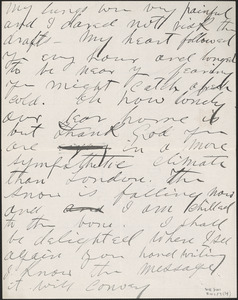 my lungs were very painful
and I dared not risk the
drafts - My heart followed
you every hour and longed
to be near you fearing
you might catch a fresh
cold. Oh how lonely
our dear home is
but thank God you
are in a more
sympathetic climate
than London. The
snow is falling now
and I am chilled
to the bone. I shall
be delighted when I see
again your hand writing
I know the message
it will convey